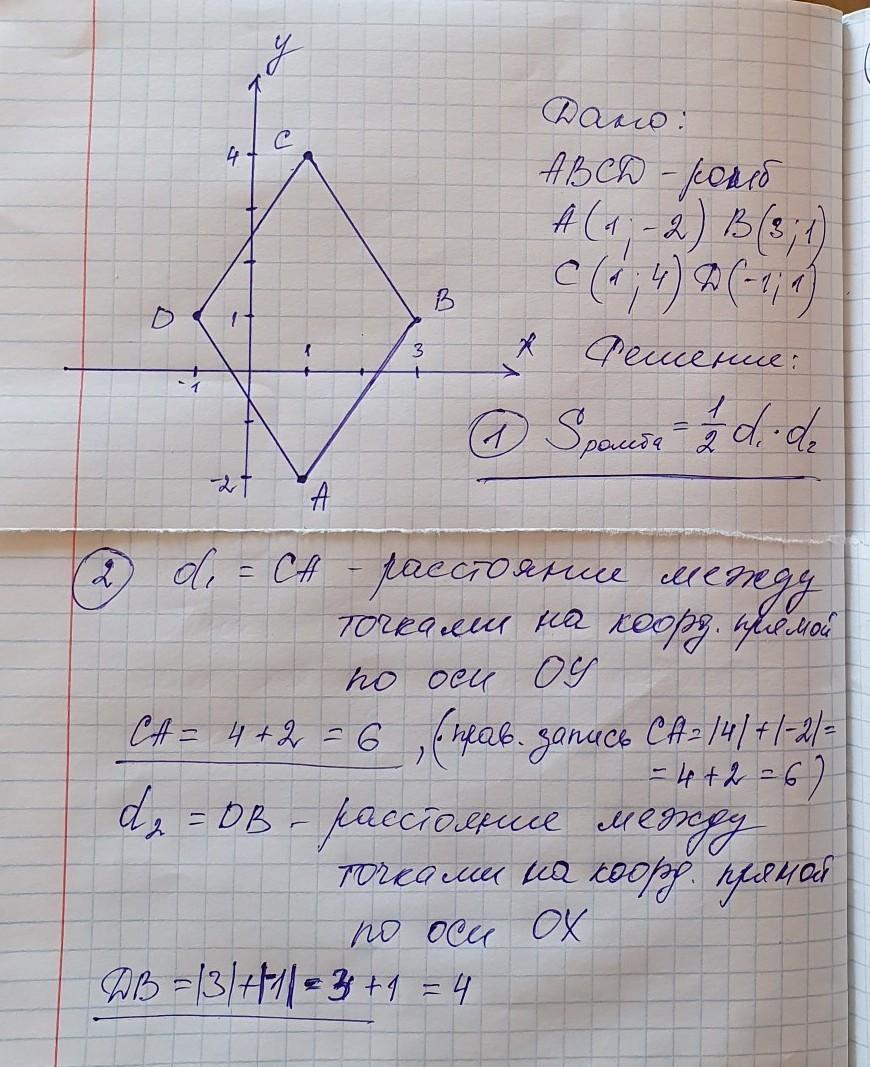 y
C
4
D
1
B
-1
1
3
x
-2
A
Дано:
ABCD - ромб
A(1;-2) B(3;1)
C(1;4) D(-1;1)
Решение:
1 Sромба = 1/2 d₁·d₂
2 d₁ = CA - расстояние между
точками на коорд. прямой
по оси ОУ
CA = 4+2 = 6, (прав. запись CA=|4|+|-2|=
=4+2=6)
d₂ = DB - расстояние между
точками на коорд. прямой
по оси ОХ
DB =|3|+|-1|=3+1 = 4